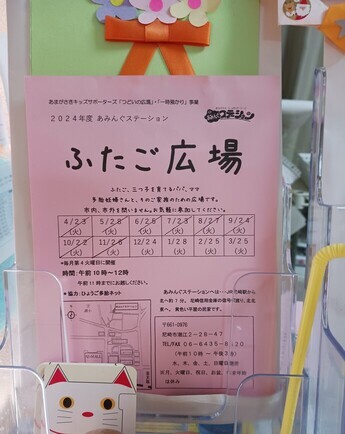 あまがさきキッズサポーターズ「つどいの広場」・「一時預かり」事業
2024年度 あみんぐステーション
あみんぐステーション
ふたご広場
ふたご、三つ子を育てるパパ、ママ
多胎妊婦さんと、そのご家族のための広場です。
市内、市外を問いません。お気軽に参加してください。
4/23 5/28 6/25 7/23 8/27 9/24
(火) (火) (火) (火) (火) (火)
10/22 11/26 12/24 1/28 2/25 3/25
(火) (火) (火) (火) (火) (火)
*毎月第4火曜日に開催
時間:午前10時~12時
午前11時までにお越しください。
*協力:ひょうご多胎ネット
あみんぐステーションへは
〒661-0976
尼崎市潮江2-28-47
TEL/FAX 06-6435-8
(午前10時~午後3
水、木、金、土、日曜日
は休み